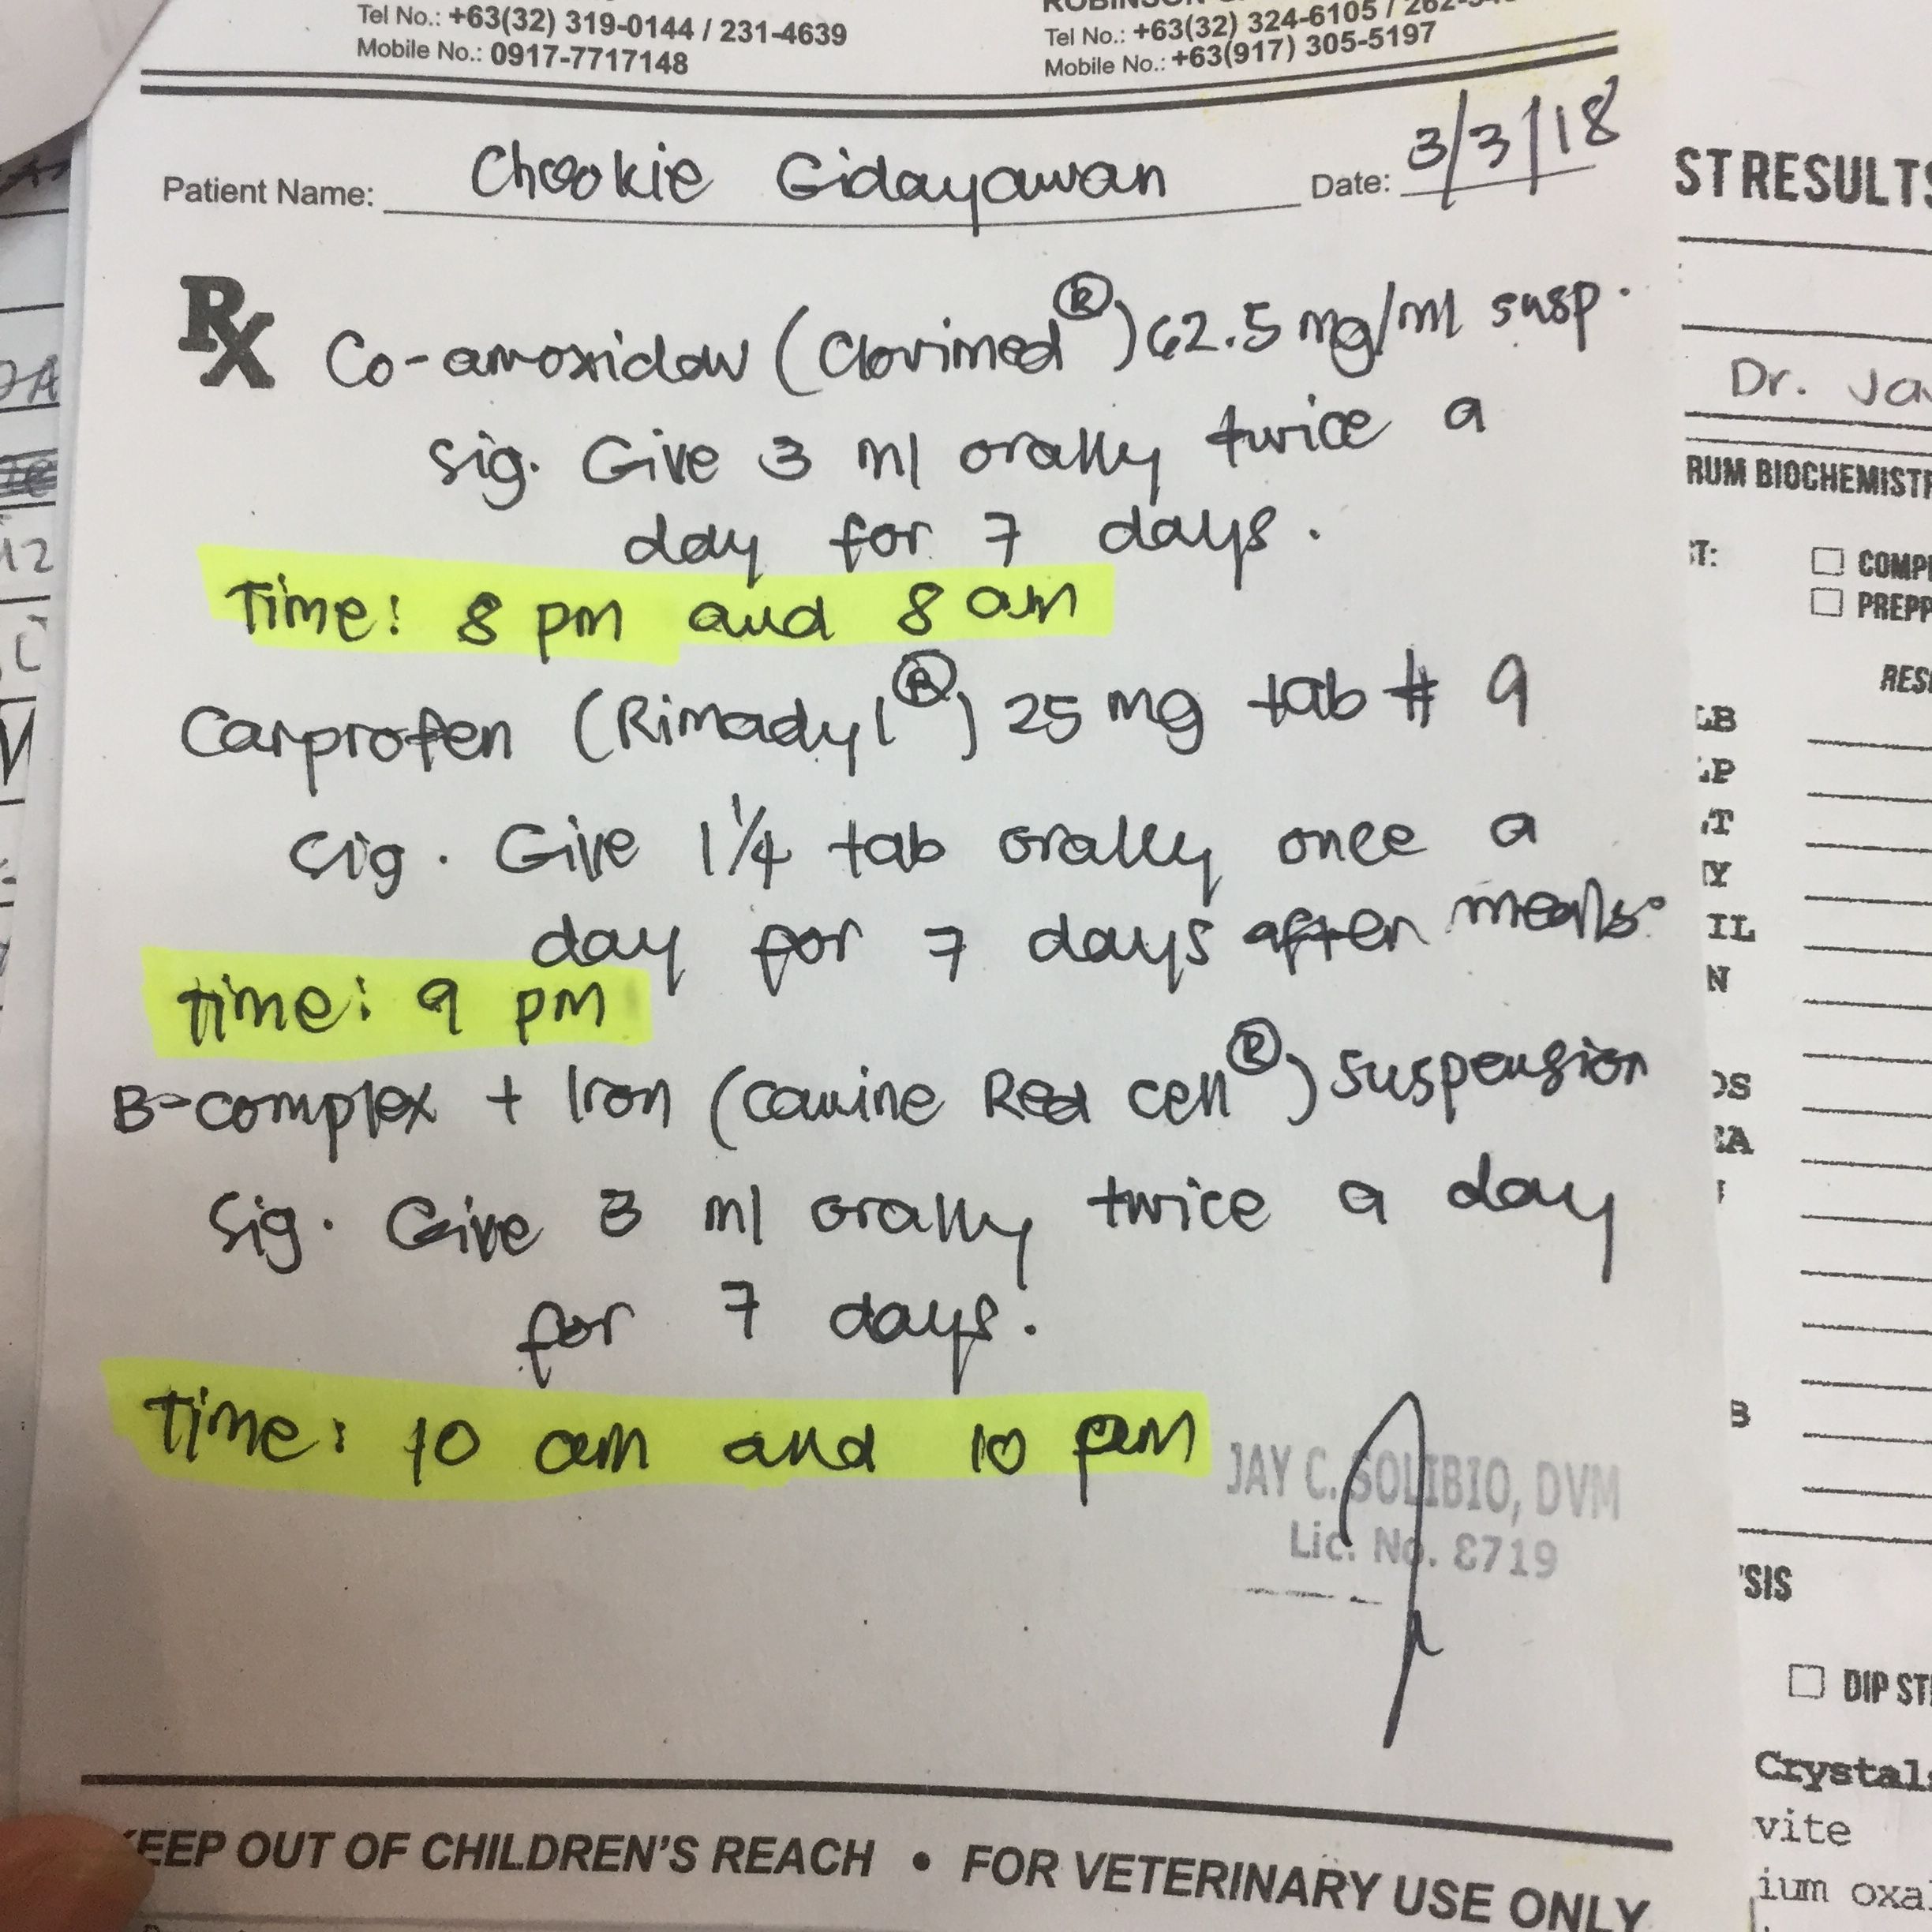 Tel No.: +63(32) 319-0144 / 231-4639
Mobile No.: 0917-7717148
Tel No.: +63(32) 324-6105 /
Mobile No.: +63(917) 305-5197
Patient Name: Chookie Gidayawan Date: 3/3/18
Rx
Co-amoxiclav (Clovimed®) 62.5 mg/ml susp.
Sig. Give 3 ml orally twice a
day for 7 days.
Time: 8 pm and 8 am
Carprofen (Rimadyl®) 25 mg tab # 9
Sig. Give 1 1/4 tab orally once a
day for 7 days after meals.
Time: 9 pm
B-complex + Iron (Canine Red cell®) suspension
Sig. Give 3 ml orally twice a day
for 7 days.
Time: 10 am and 10 pm
JAY C. SOLIBIO, DVM
Lic. No. 8719
KEEP OUT OF CHILDREN'S REACH • FOR VETERINARY USE ONLY
ST RESULTS
Dr. Ja
RUM BIOCHEMISTR
T:
COMP
PREPP
RES
LB
LP
T
Y
IL
N
OS
EA
B
SIS
DIP ST
Crystals
vite
ium oxa